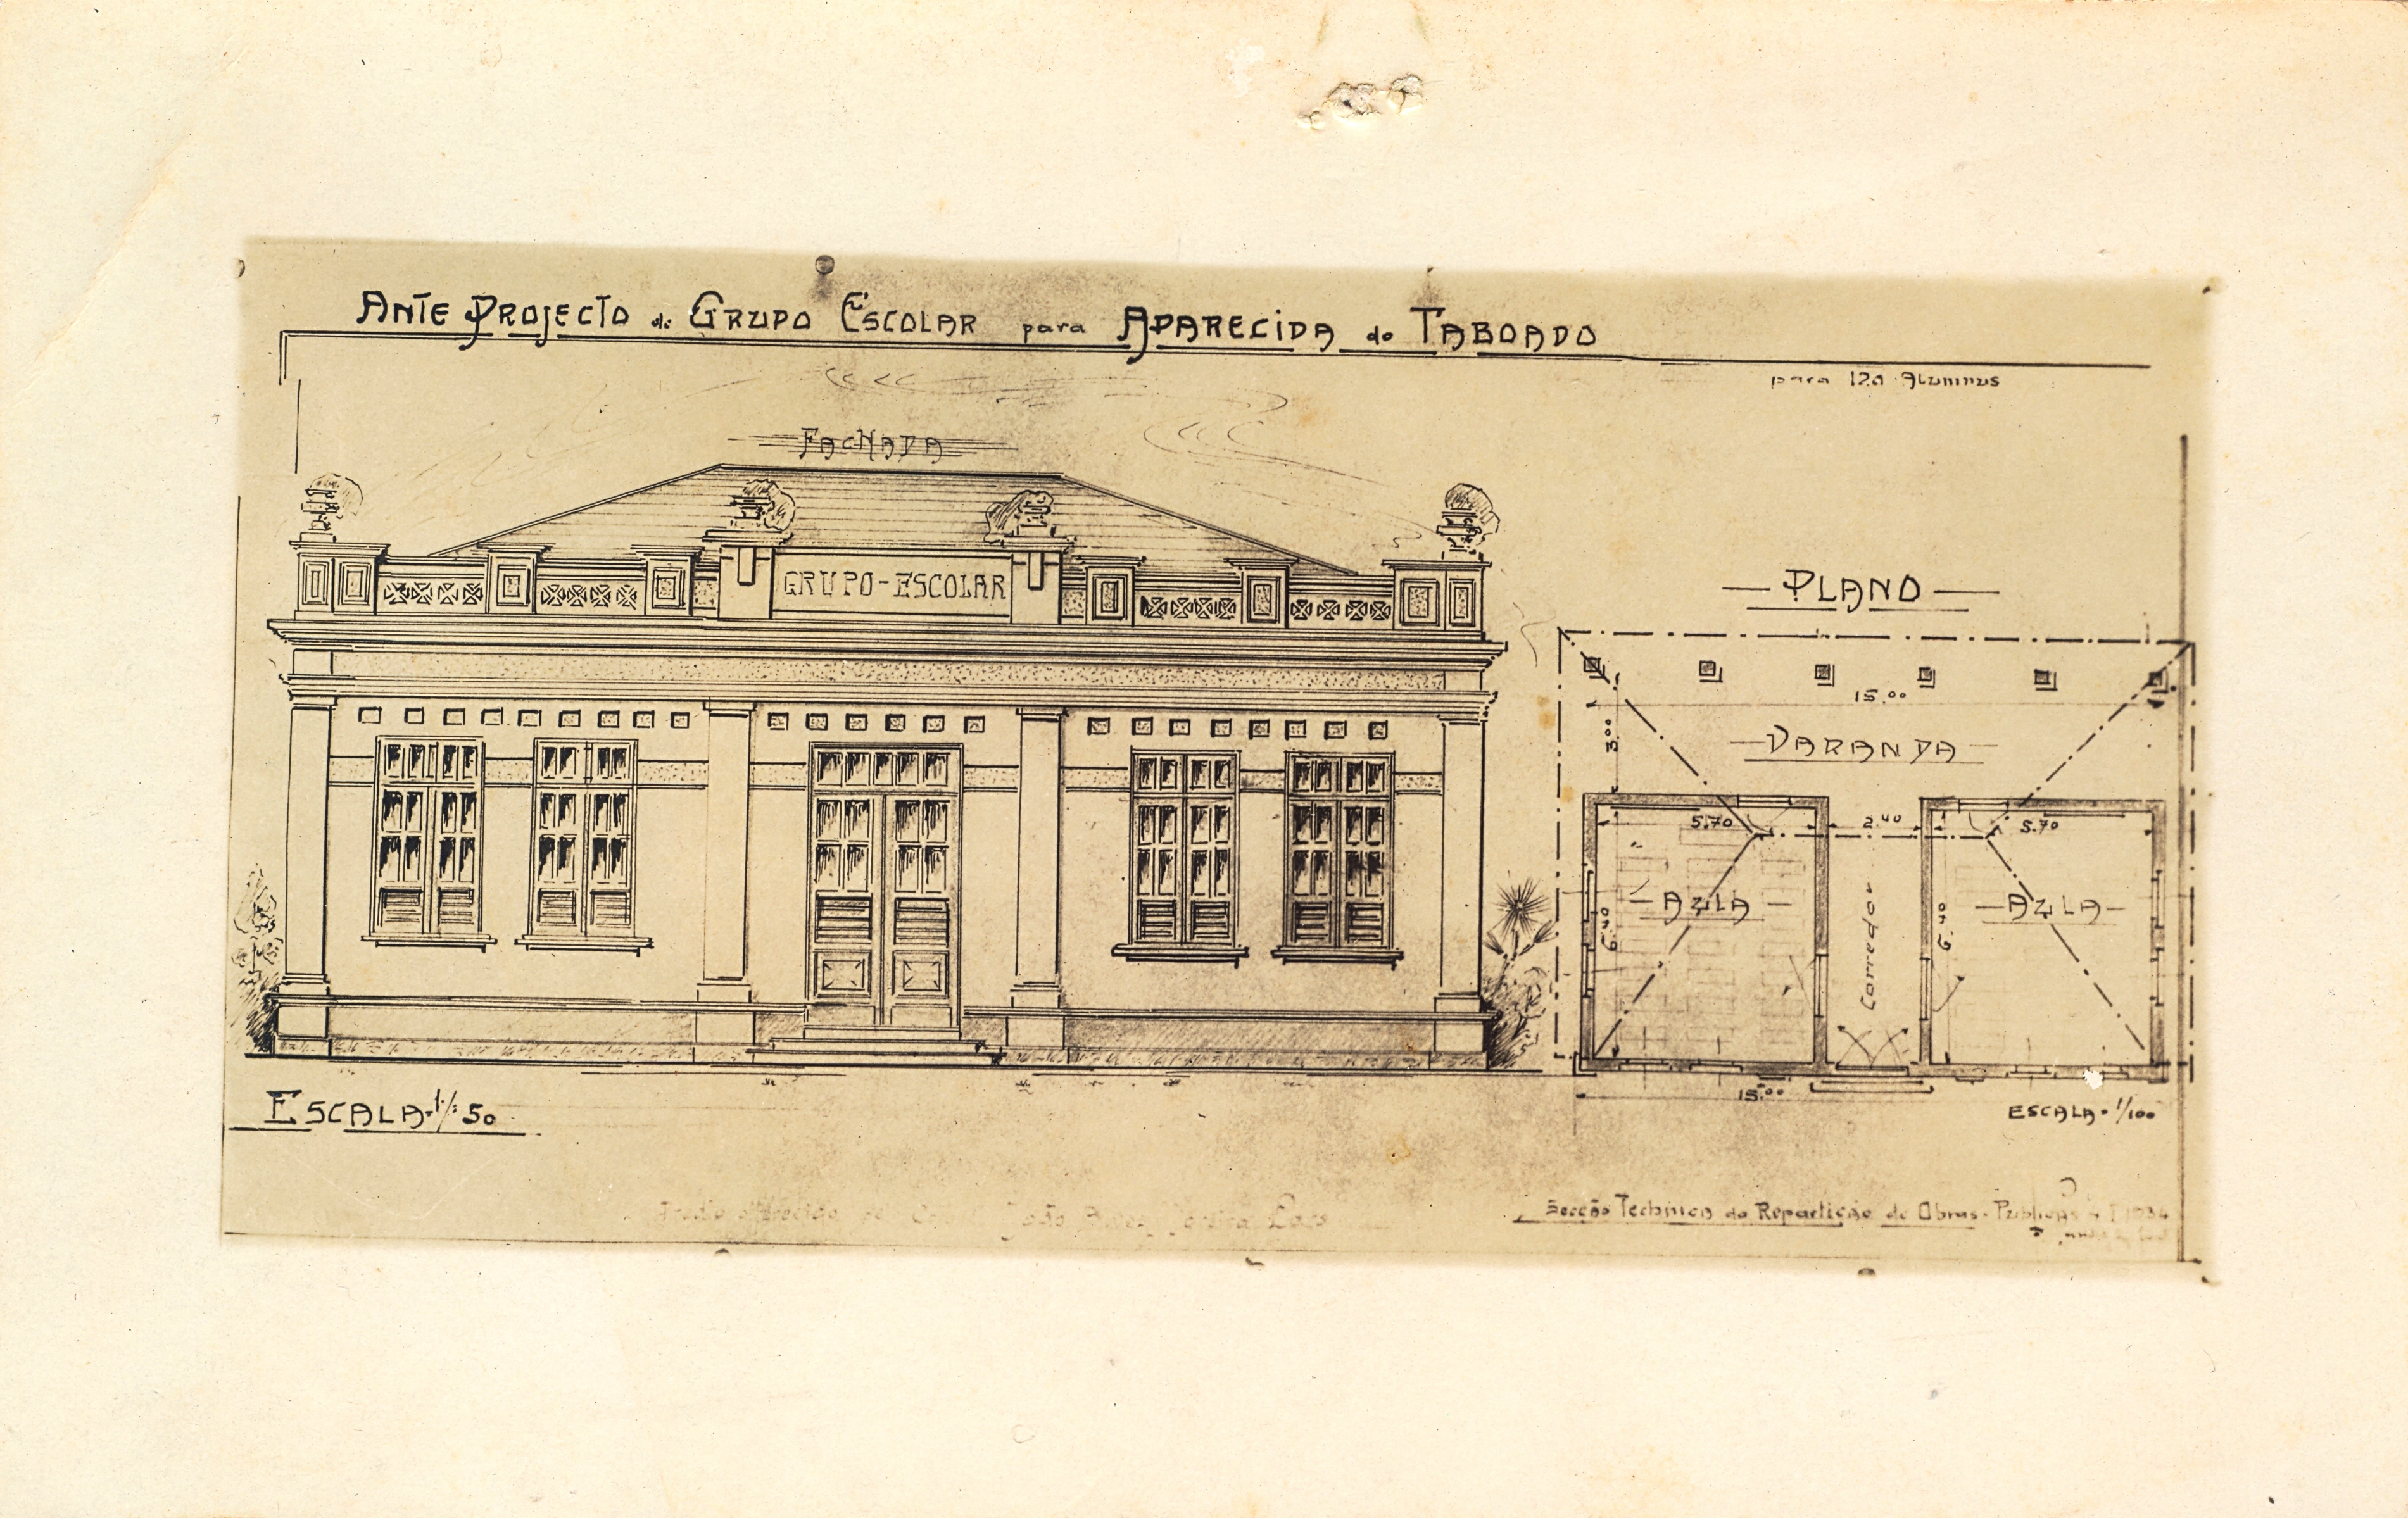 ANTE PROJECTO de GRUPO ESCOLAR para APARECIDA do TABOADO
para 120 Alumnos
FACHADA
GRUPO-ESCOLAR
PLANO
15.00
3.00
VARANDA
5.70 2.40 5.70
AULA AULA
6.40 Corredor 6.40
15.00
ESCALA-1/:50
ESCALA-1/100
Secção Technica da Repartição de Obras-Publicas 1934